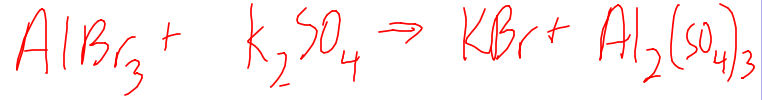 AlBr₃ + K₂SO₄ ⇒ KBr + Al₂(SO₄)₃